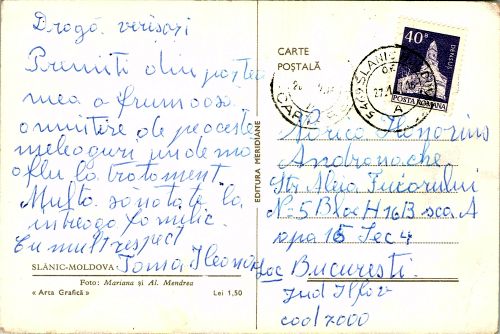 Dragă verișoți
Premiți din partea
mea o frumoasă
amintire de peaceste
meleaguri unde mo
aflu la tratament.
Multa sănatate la
intreaga familie.
Cu mult respect
Toma Ileonora
SLĂNIC-MOLDOVA
Foto: Mariana și Al. Mendrea
« Arta Grafică »
Lei 1,50
EDITURA MERIDIANE
CARTE
POȘTALĂ
40 B
DENSUȘ
POSTA ROMANA
SLANIC
A
Honorius
Andronache
Str Aleja
N-5 Bloc H16B sca A
apa 15 Sec 4
loc București.
Jud Ilfov
cod 7000